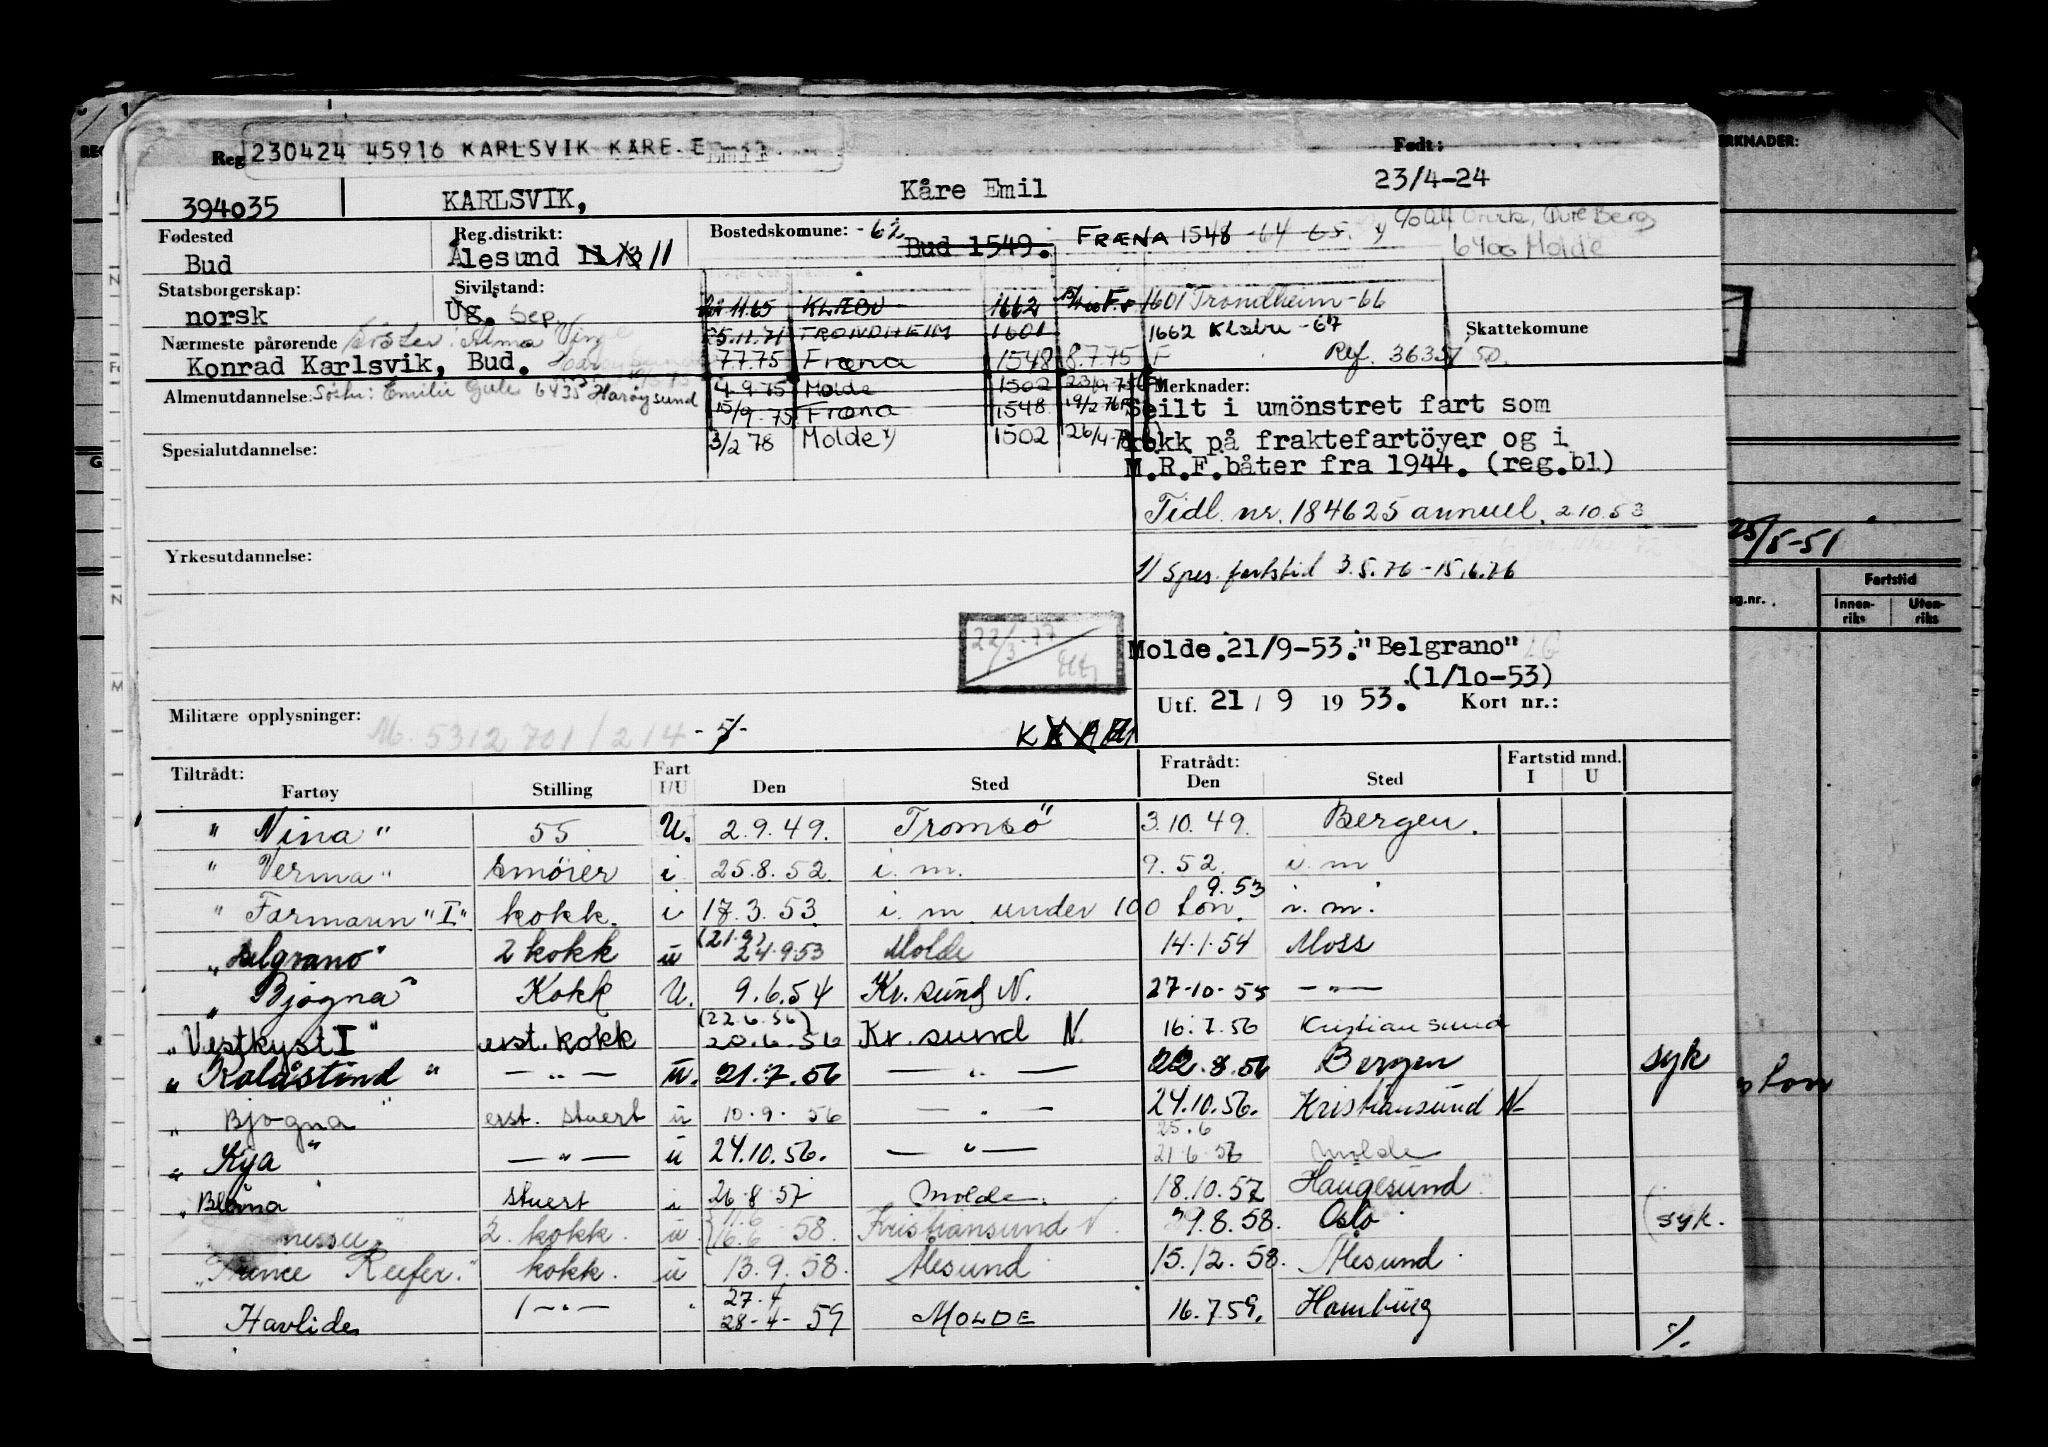 Reg 230424 45916 KARLSVIK KÅRE E Emil Født:
394o35 KARLSVIK, Kåre Emil 23/4-24
Fødested Bud
Reg.distrikt: Ålesund 11
Bostedskommune: -62 Bud 1549. FRÆNA 1548 -64-65.
6400 Molde
Statsborgerskap: norsk
Sivilstand: Ug. Sep.
11.65 KLÆBU 1662
1601 Trondheim -66
5.11.71 TRONDHEIM 1601
1662 Klæbu -67
Skattekomune
Nærmeste pårørende Søster: Alma
Konrad Karlsvik, Bud.
7.7.75 Fræna 1548 8.7.75 F
Ref. 36357 50.
Almenutdannelse: Søster: Emilie 6435 Harøysund
4.9.75 Molde 1502
15/9.75 Fræna 1548 19/2.76
3/2 78 Molde 1502 26/4.78
Spesialutdannelse:
Merknader:
Seilt i umönstret fart som
kokk på fraktefartöyer og i
M.R.F.båter fra 1944. (reg.bl)
Tidl. nr. 184625 annuel. 2.10.53
Yrkesutdannelse:
1/ Spes. fartstid 3.5.76 - 15.6.76
22/3.77
Molde.21/9-53."Belgrano"
(1/1o-53)
Utf. 21 / 9 19 53. Kort nr.:
Militære opplysninger: M. 5312701/214 -5/-
Tiltrådt: Fratrådt: Fartstid mnd.
Fartøy Stilling Fart I/U Den Sted Den Sted I U
"Nina" 55 U. 2.9.49. Tromsö 3.10.49. Bergen.
"Verma" smörer i 25.8.52. i.m. 9.52. i.m
"Farmann "I" kokk. i 17.3.53 i.m. under 100 ton. 9.53 i.m.
"Belgrano" 2 kokk u (21.9) 24.9.53 Molde 14.1.54 Moss
"Bjøgna" Kokk U. 9.6.54 Kr.sund N. 27-10-55 —"—
"Vestkyst I" erst. kokk (22.6.56) 20.6.56 Kr.sund N. 16.7.56 Kristiansund
"Kolåstind" —"— u. 21.7.56 —"— 22.8.56 Bergen syk
"Bjøgna" erst. stuert u 10.9.56 —"— 24.10.56. Kristiansund N-
"Kya" —"— u 24.10.56. —"— 25.6 21.6.57 Molde
"Blåna" stuert i 26.8.57 Molde. 18.10.57 Haugesund
2. kokk. u. 11.6 16.6 58. Kristiansund N. 29.8.58. Oslo (syk.
Reefer." kokk. u 13.9.58. Ålesund 15.12.58. Ålesund
Havlide 1—"— " 27.4 28-4-59 MOLDE 16.7.59. Hamburg
%.
ERKNADER:
25/5-51
Fartstid
Innenriks Utenriks